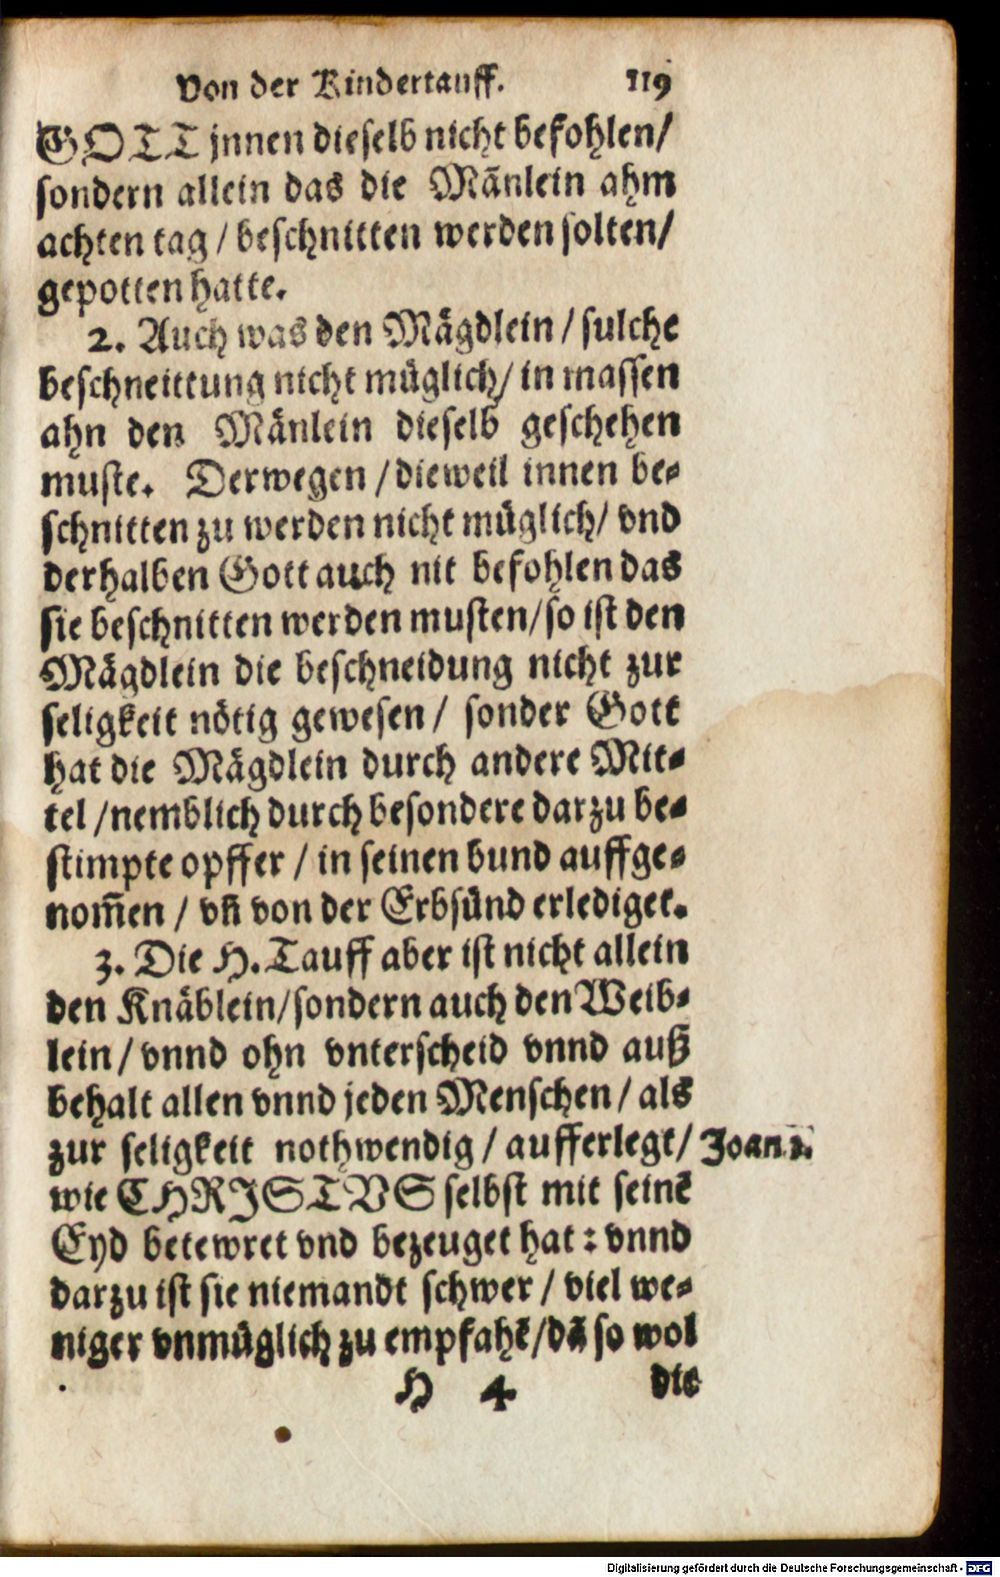 Von der Kindertauff. 119
GOTT jnnen dieselb nicht befohlen/
sondern allein das die Mänlein ahm
achten tag / beschnitten werden solten/
gepotten hatte.
2. Auch was den Mägdlein / sulche
beschneittung nicht müglich/ in massen
ahn den Mänlein dieselb geschehen
muste. Derwegen / dieweil innen be-
schnitten zu werden nicht müglich/ vnd
derhalben Gott auch nit befohlen das
sie beschnitten werden musten/so ist den
Mägdlein die beschneidung nicht zur
seligkeit nötig gewesen / sonder Gott
hat die Mägdlein durch andere Mit-
tel /nemblich durch besondere darzu be-
stimpte opffer / in seinen bund auffge-
nom̃en / vñ von der Erbsünd erlediget.
3. Die H. Tauff aber ist nicht allein
den Knäblein/sondern auch den Weib-
lein / vnnd ohn vnterscheid vnnd auß
behalt allen vnnd jeden Menschen / als
zur seligkeit nothwendig / aufferlegt/ Joan
wie CHRISTVS selbst mit seinẽ
Eyd betewret vnd bezeuget hat : vnnd
darzu ist sie niemandt schwer / viel we-
niger vnmüglich zu empfahẽ/dã so wol
H 4 die
Digitalisierung gefördert durch die Deutsche Forschungsgemeinschaft - DFG